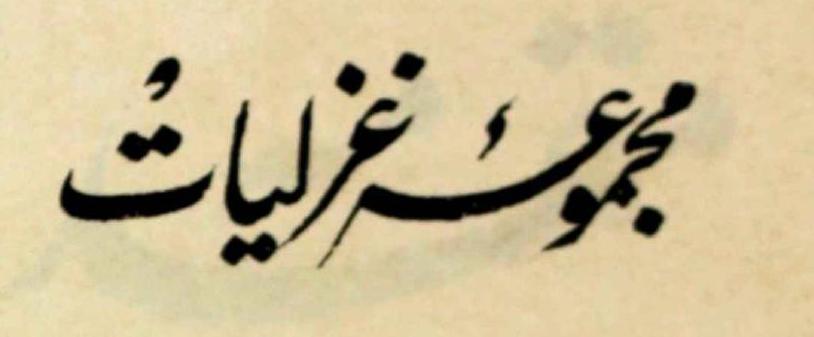 مجموعۂ غزلیاتُ